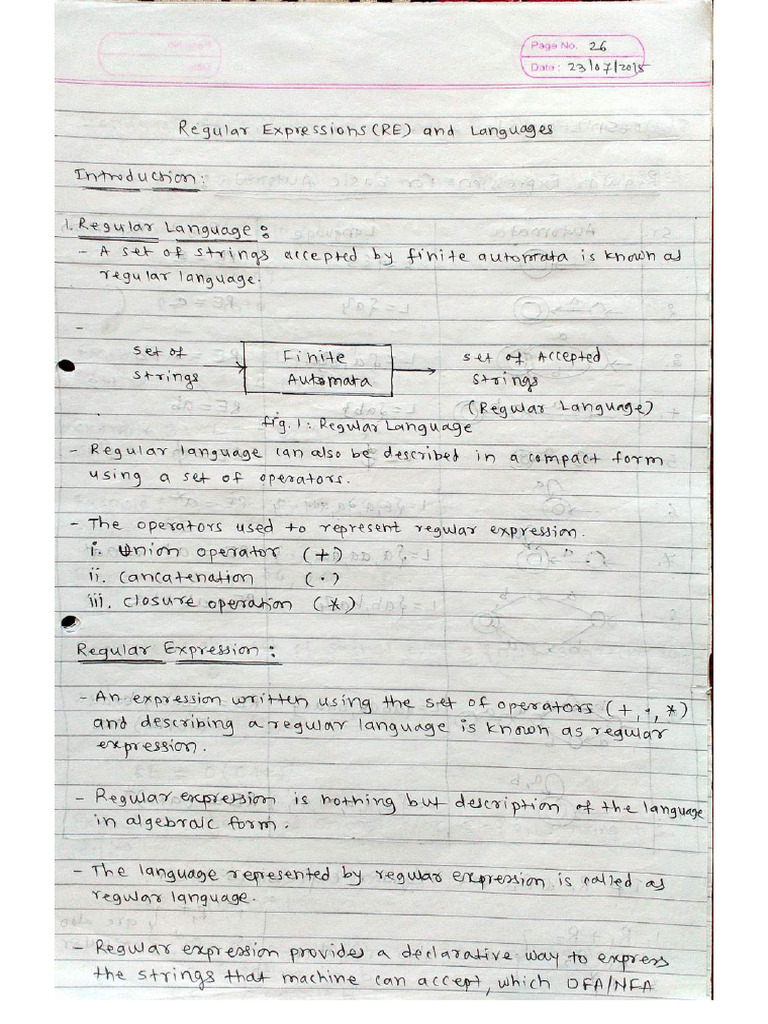 Page No. 26
Date: 23/07/2015
Regular Expressions (RE) and Languages
Introduction:
1. Regular Language:
- A set of strings accepted by finite automata is known as
regular language.
-
set of
strings
Finite
Automata
set of Accepted
strings
(Regular Language)
fig. 1: Regular Language
- Regular language can also be described in a compact form
using a set of operators.
- The operators used to represent regular expression.
i. Union operator (+)
ii. cancatenation (·)
iii. closure operation (*)
Regular Expression:
- An expression written using the set of operators (+, ·, *)
and describing a regular language is known as regular
expression.
- Regular expression is nothing but description of the language
in algebraic form.
- The language represented by regular expression is called as
regular language.
- Regular expression provides a declarative way to express
the strings that machine can accept, which DFA/NFA